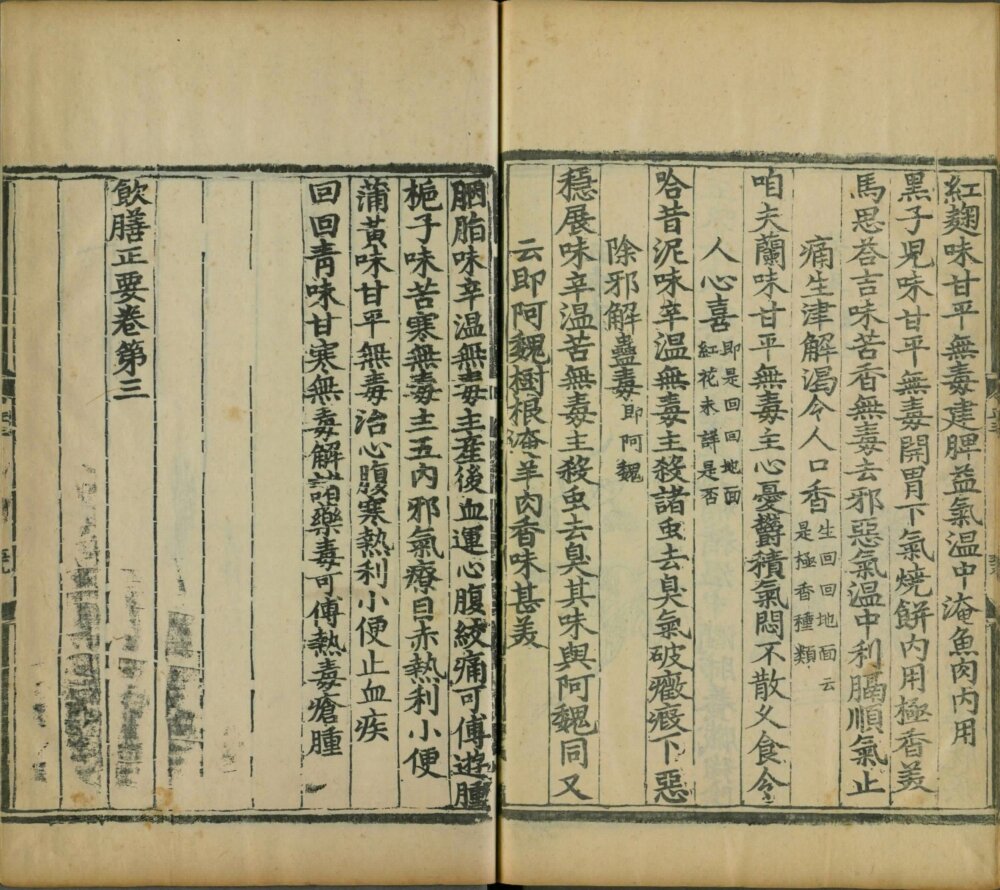 紅麹味甘平無毒建脾益氣温中淹魚肉内用
黑子児味甘平無毒開胃下氣燒餅内用極香美
馬思荅吉味苦香無毒去邪惡氣温中利膈順氣止
痛生津解渴令人口香生回回地面云是極香種類
咱夫蘭味甘平無毒主心憂欝積氣悶不散乆食令
人心喜即是回回地面紅花未詳是否
哈昔泥味辛温無毒主殺諸虫去臭氣破癥瘕下惡
除邪解蠱毒即阿魏
穩展味辛温苦無毒主殺虫去臭其味與阿魏同又
云即阿魏樹根淹羊肉香味甚美
胭脂味辛温無毒主産後血運心腹絞痛可傅遊腫
梔子味苦寒無毒主五内邪氣療目赤熱利小便
蒲黄味甘平無毒治心腹寒熱利小便止血疾
回回青味甘寒無毒解諸藥毒可傅熱毒瘡腫
飲膳正要卷第三